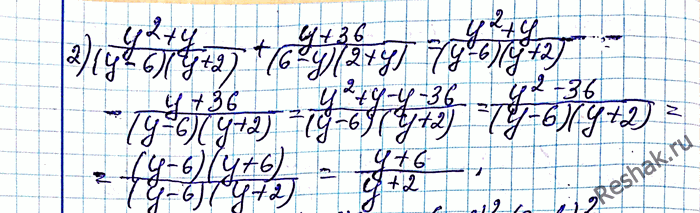 2) (y²+y)/((y-6)(y+2)) + (y+36)/((6-y)(2+y)) = (y²+y)/((y-6)(y+2)) -
- (y+36)/((y-6)(y+2)) = (y²+y-y-36)/((y-6)(y+2)) = (y²-36)/((y-6)(y+2)) =
= ((y-6)(y+6))/((y-6)(y+2)) = (y+6)/(y+2).
Reshak.ru